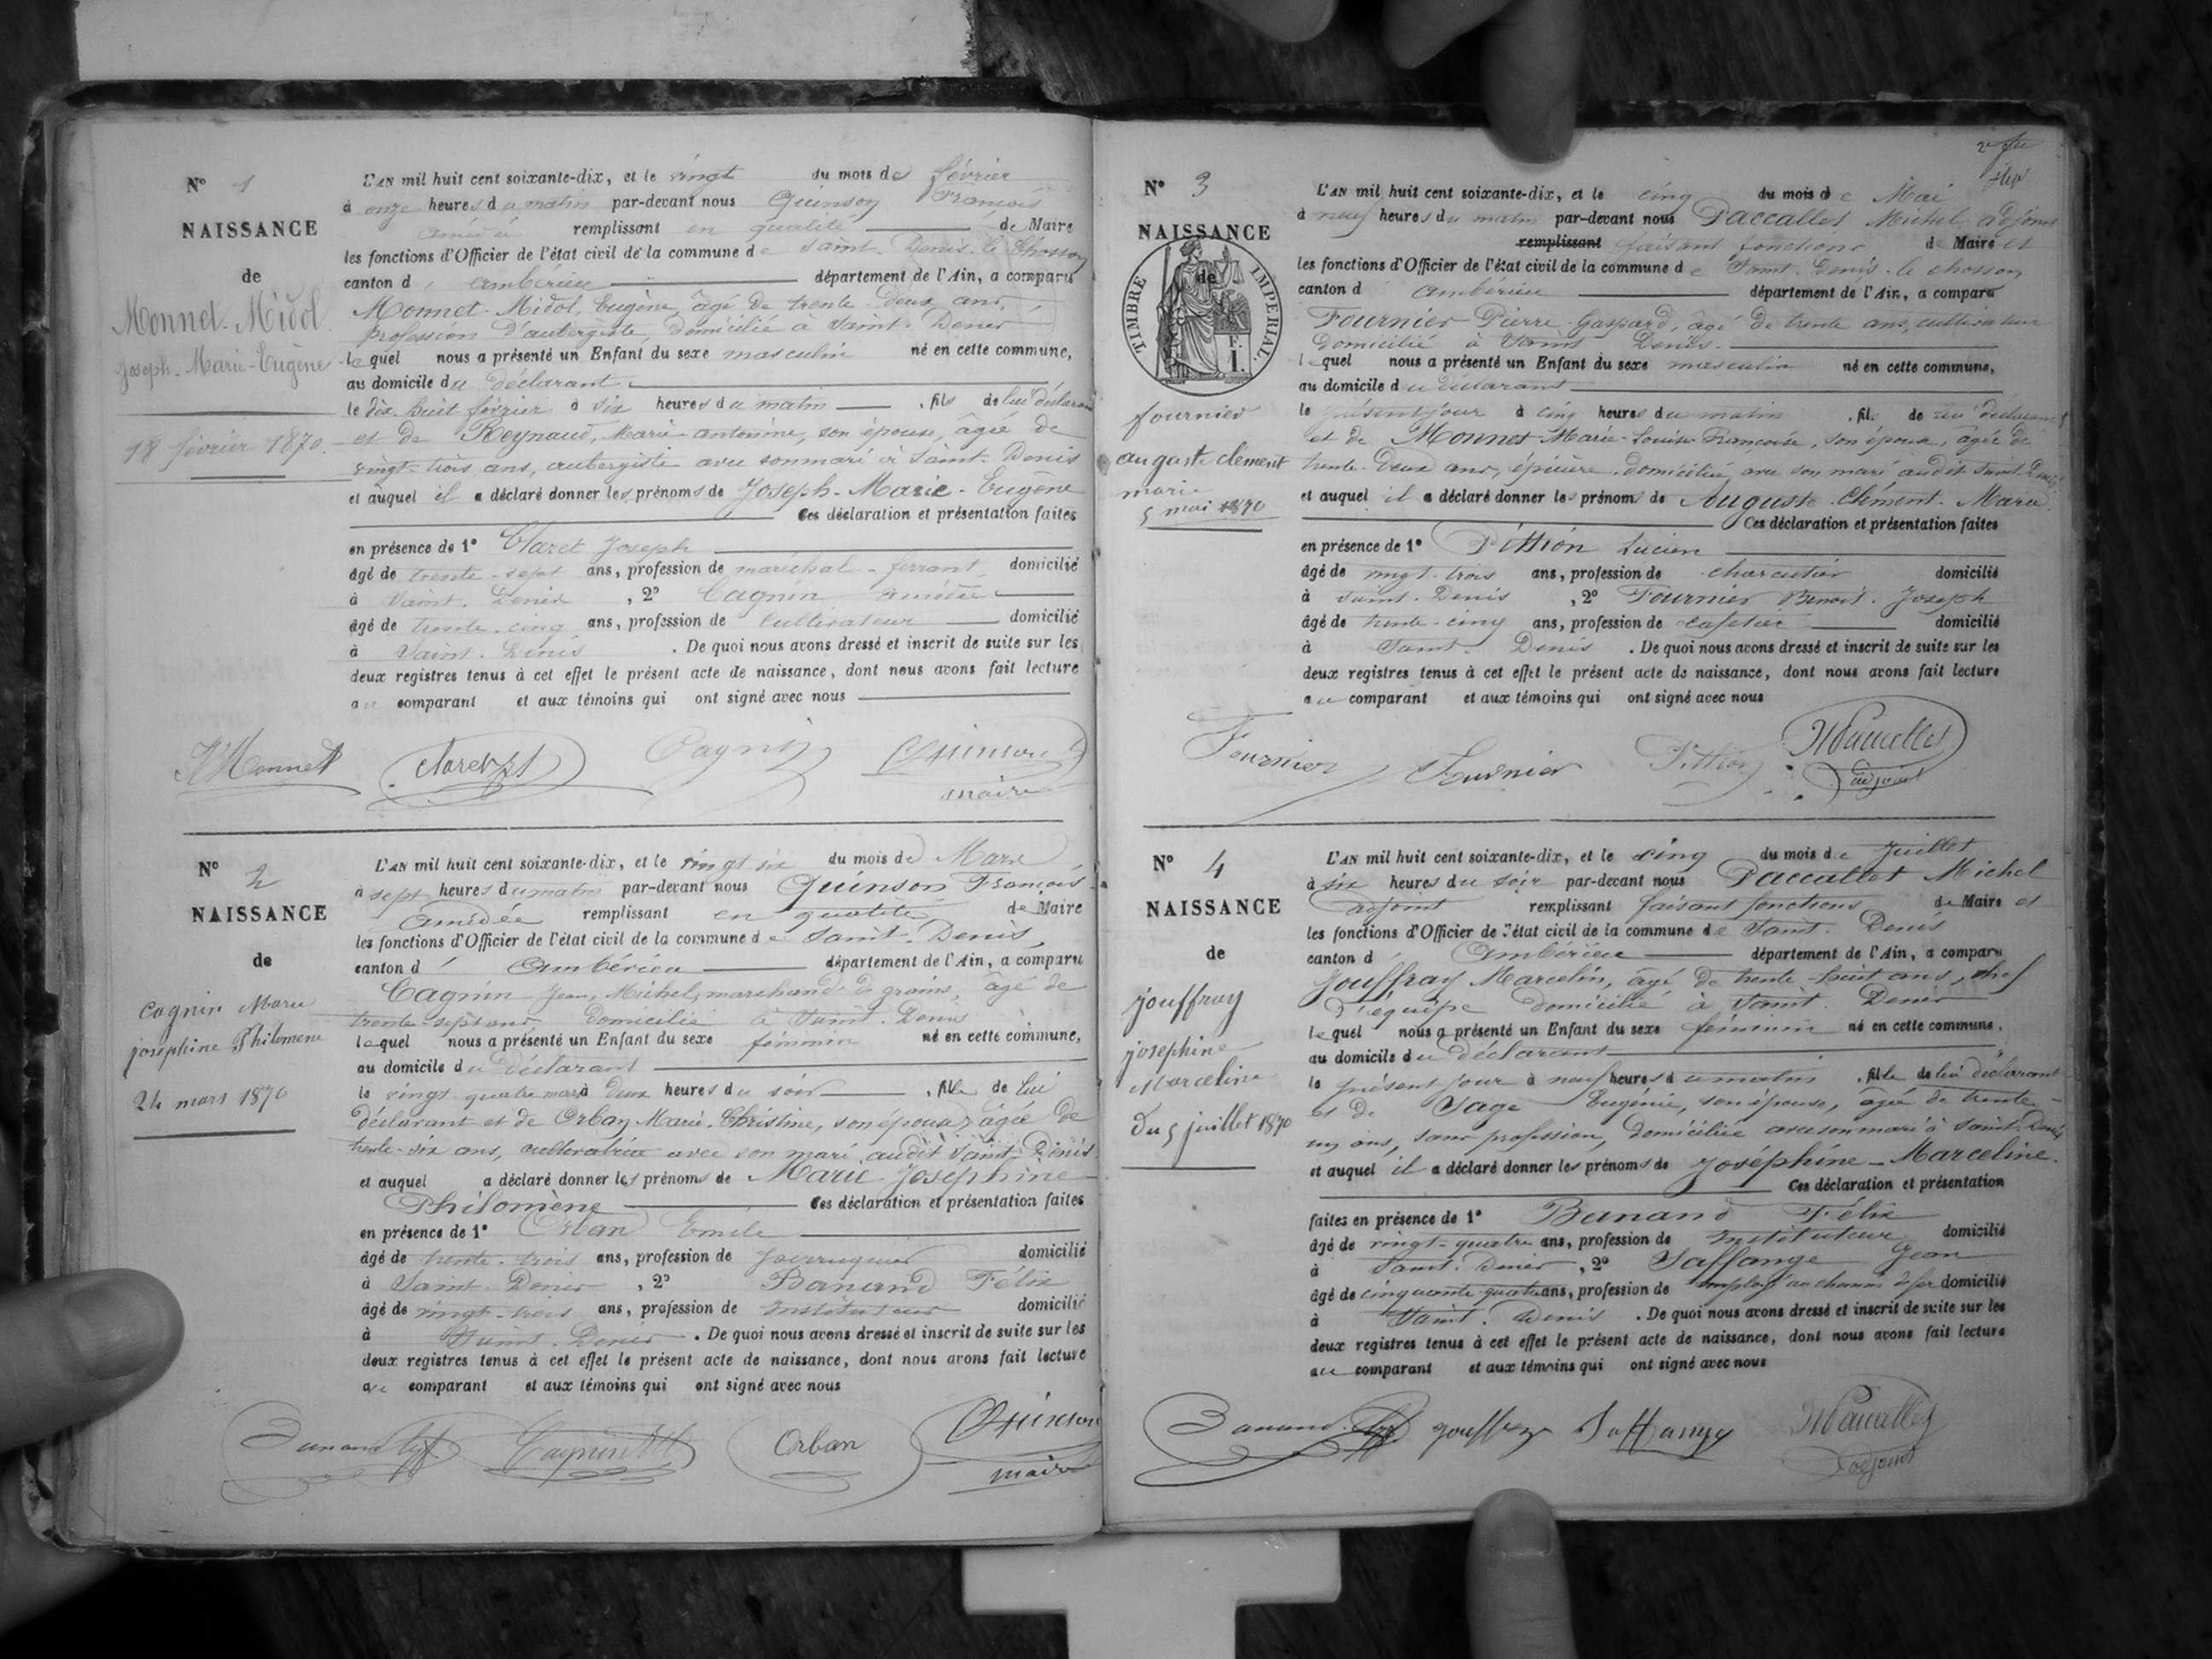 N° 1
NAISSANCE
de
Monnet-Midol
Joseph-Marie-Eugène
18 février 1870.
L'AN mil huit cent soixante-dix, et le vingt du mois de février
à onze heures du matin par-devant nous Quinson François
Amédée remplissant en qualité de Maire
les fonctions d'Officier de l'état civil de la commune de Saint-Denis-le-Chosson
canton d'Ambérieu département de l'Ain, a comparu
Monnet-Midol, Eugène, âgé de trente-deux ans,
profession d'aubergiste, domicilié à Saint-Denis
lequel nous a présenté un Enfant du sexe masculin né en cette commune,
au domicile du déclarant
le dix-huit février à six heures du matin, fils de lui déclarant
et de Reynaud, Marie-Antonine, son épouse, âgée de
vingt-trois ans, aubergiste avec son mari à Saint-Denis
et auquel il a déclaré donner les prénoms de Joseph-Marie-Eugène
Ces déclaration et présentation faites
en présence de 1° Claret Joseph
âgé de trente-sept ans, profession de maréchal-ferrant domicilié
à Saint-Denis, 2° Cagnin Amédée
âgé de trente-cinq ans, profession de cultivateur domicilié
à Saint-Denis. De quoi nous avons dressé et inscrit de suite sur les
deux registres tenus à cet effet le présent acte de naissance, dont nous avons fait lecture
au comparant et aux témoins qui ont signé avec nous
Monnet Claret Cagnin Quinson
maire
N° 2
NAISSANCE
de
Cagnin Marie
josephine Philomene
24 mars 1870
L'AN mil huit cent soixante-dix, et le vingt six du mois de Mars
à sept heures du matin par-devant nous Quinson François
Amédée remplissant en qualité de Maire
les fonctions d'Officier de l'état civil de la commune de Saint-Denis,
canton d'Ambérieu département de l'Ain, a comparu
Cagnin Jean, Michel, marchand de grains, âgé de
trente-sept ans domicilié à Saint-Denis
lequel nous a présenté un Enfant du sexe féminin né en cette commune,
au domicile du déclarant
le vingt-quatre mars à deux heures du soir, fille de lui
déclarant et de Orban Marie-Christine, son épouse, âgée de
trente-six ans, cultivatrice avec son mari audit Saint-Denis
et auquel a déclaré donner les prénoms de Marie Joséphine
Philomène Ces déclaration et présentation faites
en présence de 1° Orban Emile
âgé de trente-trois ans, profession de perruquier domicilié
à Saint-Denis, 2° Banand Félix
âgé de vingt-trois ans, profession de instituteur domicilié
à Saint-Denis. De quoi nous avons dressé et inscrit de suite sur les
deux registres tenus à cet effet le présent acte de naissance, dont nous avons fait lecture
au comparant et aux témoins qui ont signé avec nous
Banand Cagnin Orban Quinson
maire
N° 3
NAISSANCE
de
TIMBRE IMPERIAL.
F.
1.
fournier
auguste clement
marie
5 mai 1870
L'AN mil huit cent soixante-dix, et le cinq du mois de Mai
à neuf heures du matin par-devant nous Paccallet Michel adjoint
remplissant faisant fonctions de Maire et
les fonctions d'Officier de l'état civil de la commune de Saint-Denis-le-chosson
canton d'Ambérieu département de l'Ain, a comparu
Fournier Pierre-Gaspard, âgé de trente ans, cultivateur
domicilié à Saint Denis.
lequel nous a présenté un Enfant du sexe masculin né en cette commune,
au domicile du déclarant
le présent jour à cinq heures du matin, fils de lui déclarant
et de Monnet Marie-Louise-Françoise, son épouse, âgée de
trente-deux ans, épicière, domiciliée avec son mari audit Saint-Denis
et auquel il a déclaré donner les prénoms de Auguste-Clément-Marie
Ces déclaration et présentation faites
en présence de 1° Pittion Lucien
âgé de vingt-trois ans, profession de charcutier domicilié
à Saint-Denis, 2° Fournier Benoit-Joseph
âgé de trente-cinq ans, profession de cafetier domicilié
à Saint-Denis. De quoi nous avons dressé et inscrit de suite sur les
deux registres tenus à cet effet le présent acte de naissance, dont nous avons fait lecture
au comparant et aux témoins qui ont signé avec nous
Fournier Fournier Pittion M Paccallet
adjoint
N° 4
NAISSANCE
de
jouffray
josephine
Marceline
Du 5 juillet 1870
L'AN mil huit cent soixante-dix, et le cinq du mois de Juillet
à six heures du soir par-devant nous Paccallet Michel
adjoint remplissant faisant fonctions de Maire et
les fonctions d'Officier de l'état civil de la commune de Saint-Denis
canton d'Ambérieu département de l'Ain, a comparu
Jouffray Marcelin, âgé de trente-huit ans, chef
d'équipe domicilié à Saint-Denis
lequel nous a présenté un Enfant du sexe féminin né en cette commune,
au domicile du déclarant
le présent jour à neuf heures du matin, fille de lui déclarant
et de Sage Eugénie, son épouse, âgée de trente-
un ans, sans profession, domiciliée avec son mari à Saint-Denis
et auquel il a déclaré donner les prénoms de Joséphine-Marceline.
Ces déclaration et présentation
faites en présence de 1° Banand Félix
âgé de vingt-quatre ans, profession de instituteur domicilié
à Saint-Denis, 2° Saffange Jean
âgé de cinquante-quatre ans, profession de employé au chemin de fer domicilié
à Saint-Denis. De quoi nous avons dressé et inscrit de suite sur les
deux registres tenus à cet effet le présent acte de naissance, dont nous avons fait lecture
au comparant et aux témoins qui ont signé avec nous
Banand jouffray Saffange M Paccallet
adjoint